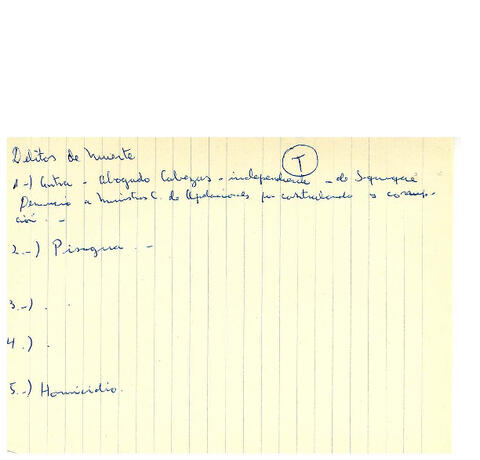 Delitos de Muerte
T
1.-) Contra - abogado Cabezas - independiente - de Iquique
Denuncio a Ministros C. de Apelaciones por contrabando y corrup-
ción. -
2.-) Pisagua. -
3.-) .
4.-) .
5.-) Homicidio.